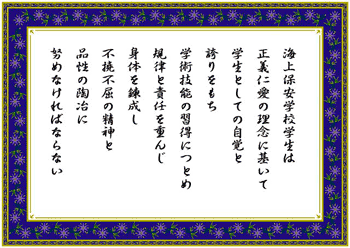 海上保安学校学生は
正義仁愛の理念に基いて
学生としての自覚と
誇りをもち
学術技能の習得につとめ
規律と責任を重んじ
身体を錬成し
不撓不屈の精神と
品性の陶冶に
努めなければならない